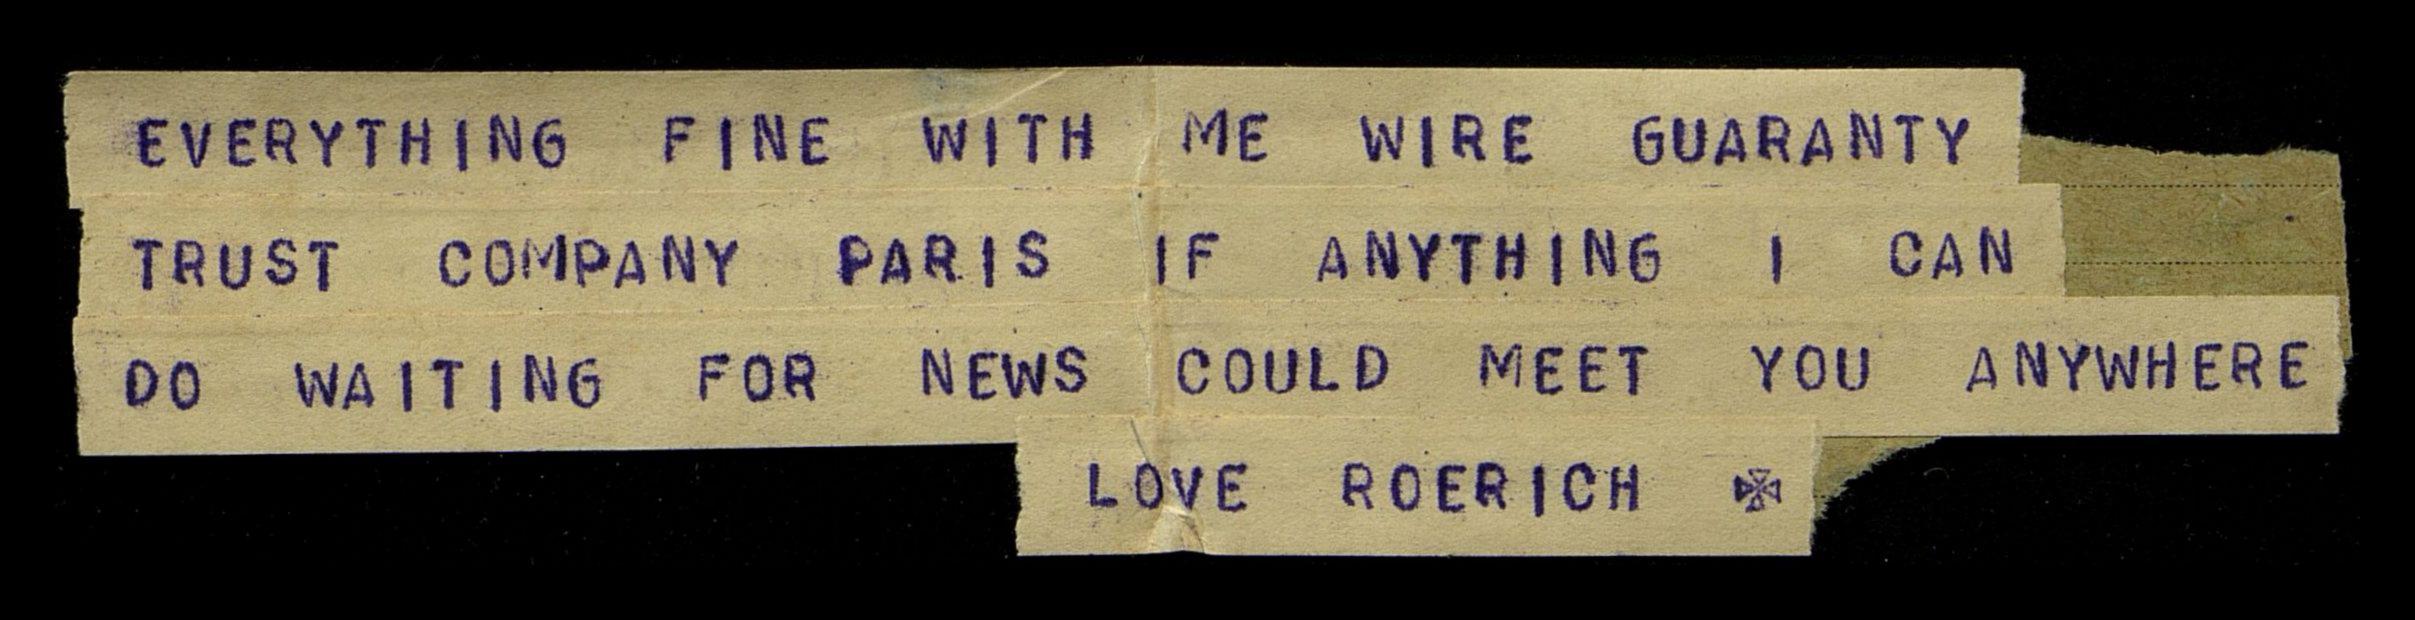 EVERYTHING FINE WITH ME WIRE GUARANTY
TRUST COMPANY PARIS IF ANYTHING I CAN
DO WAITING FOR NEWS COULD MEET YOU ANYWHERE
LOVE ROERICH ✠